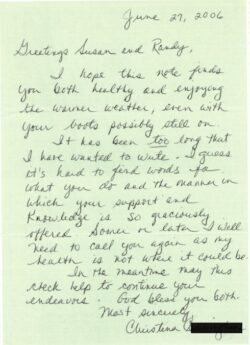 June 27, 2006
Greetings Susan and Randy,
I hope this note finds
you both healthy and enjoying
the warmer weather, even with
your boots possibly still on.
It has been too long that
I have wanted to write. I guess
it's hard to find words for
what you do and the manner in
which your support and
knowledge is so graciously
offered. Sooner or later I will
need to call you again as my
health is not where it could be.
In the meantime may this
check help to continue your
endeavors. God bless you both.
Most sincerely,
Christena